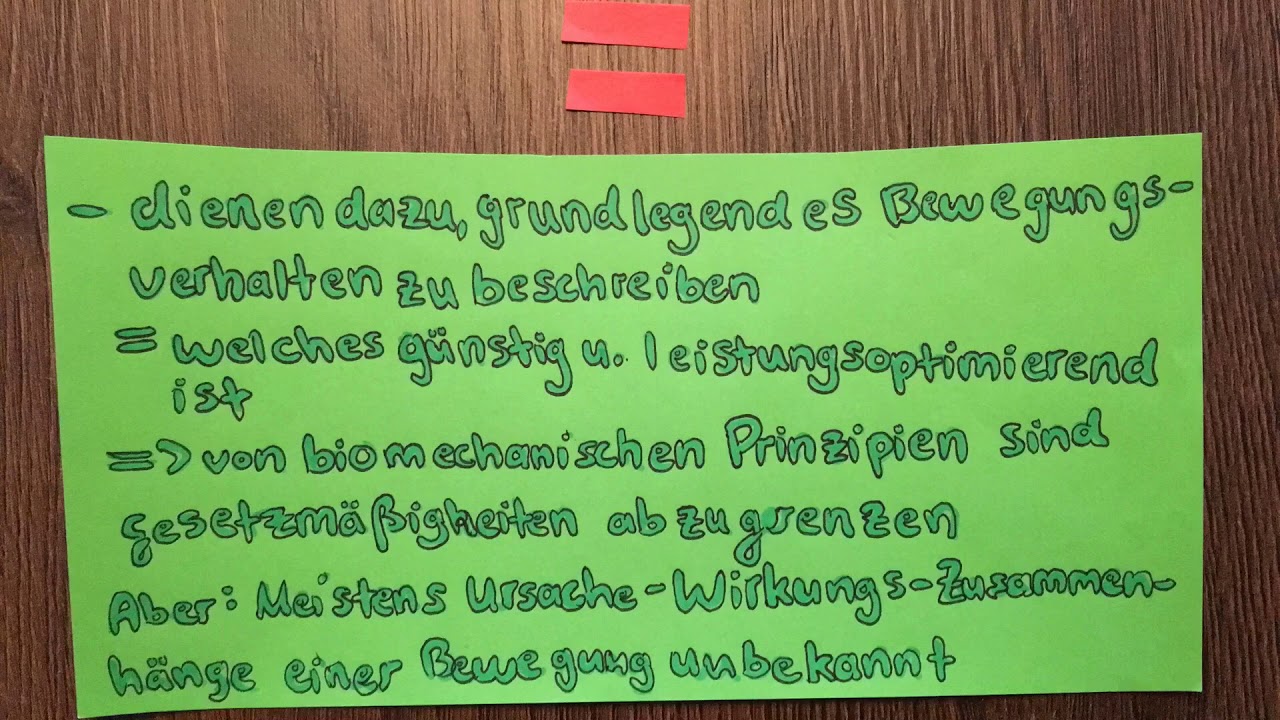 - dienen dazu, grundlegendes Bewegungs-
verhalten zu beschreiben
= welches günstig u. leistungsoptimierend
ist
=> von biomechanischen Prinzipien sind
gesetzmäßigkeiten abzugrenzen
Aber: Meistens Ursache-Wirkungs-Zusammen-
hänge einer Bewegung unbekannt